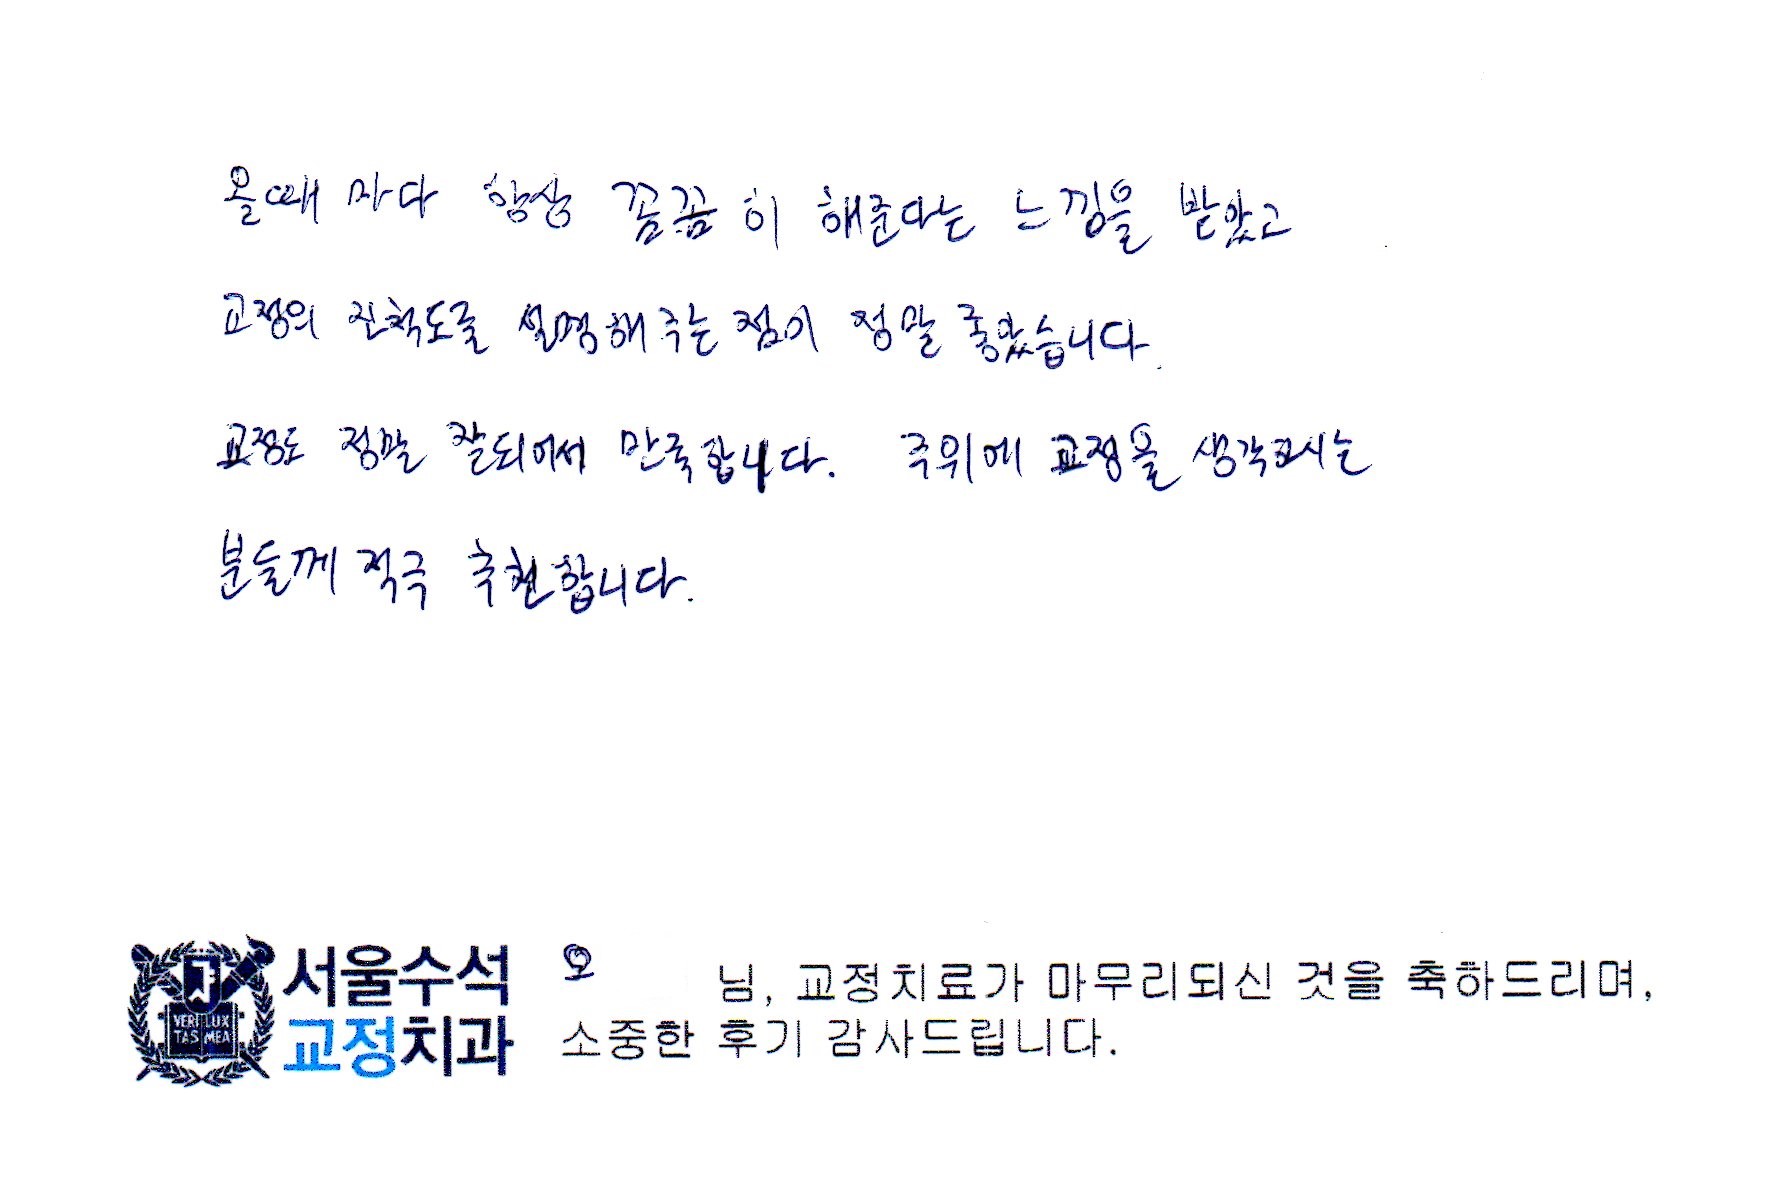 올때 마다 항상 꼼꼼히 해준다는 느낌을 받았고
교정의 진척도를 설명해 주는 점이 정말 좋았습니다.
교정도 정말 잘되어서 만족합니다. 주위에 교정을 생각하시는
분들께 적극 추천합니다.
서울수석
교정치과
VERI LUX
TAS MEA
오 님, 교정치료가 마무리되신 것을 축하드리며,
소중한 후기 감사드립니다.